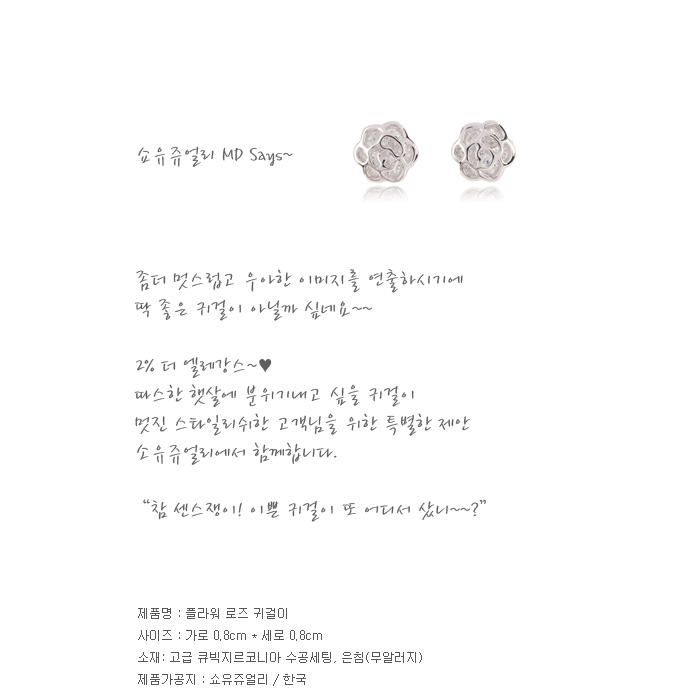 쇼유쥬얼리 MD Says~
좀더 멋스럽고 우아한 이미지를 연출하시기에
딱 좋은 귀걸이 아닐까 싶네요~~
2% 더 엘레강스~♥
따스한 햇살에 분위기내고 싶을 귀걸이
멋진 스타일리쉬한 고객님을 위한 특별한 제안
쇼유쥬얼리에서 함께합니다.
“참 센스쟁이! 이쁜 귀걸이 또 어디서 샀니~~?”
제품명 : 플라워 로즈 귀걸이
사이즈 : 가로 0,8cm * 세로 0,8cm
소재: 고급 큐빅지르코니아 수공세팅, 은침(무알러지)
제품가공지 : 쇼유쥬얼리 / 한국